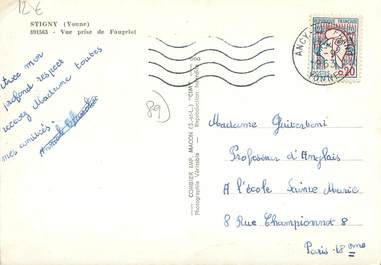 12€
STIGNY (Yonne)
891563 - Vue prise de Fougelot
Avec mon
profond respect
recevez Madame toutes
mes amitiés.
89)
COMBIER IMP. MACON (S.-et-L.) "CIM"
Photographie Véritable - Reproduction interdite
1963
YONNE
0,20
Madame
Professeur d'Anglais
A l'école Sainte Marie
8 Rue Championnet 8
Paris-18 eme